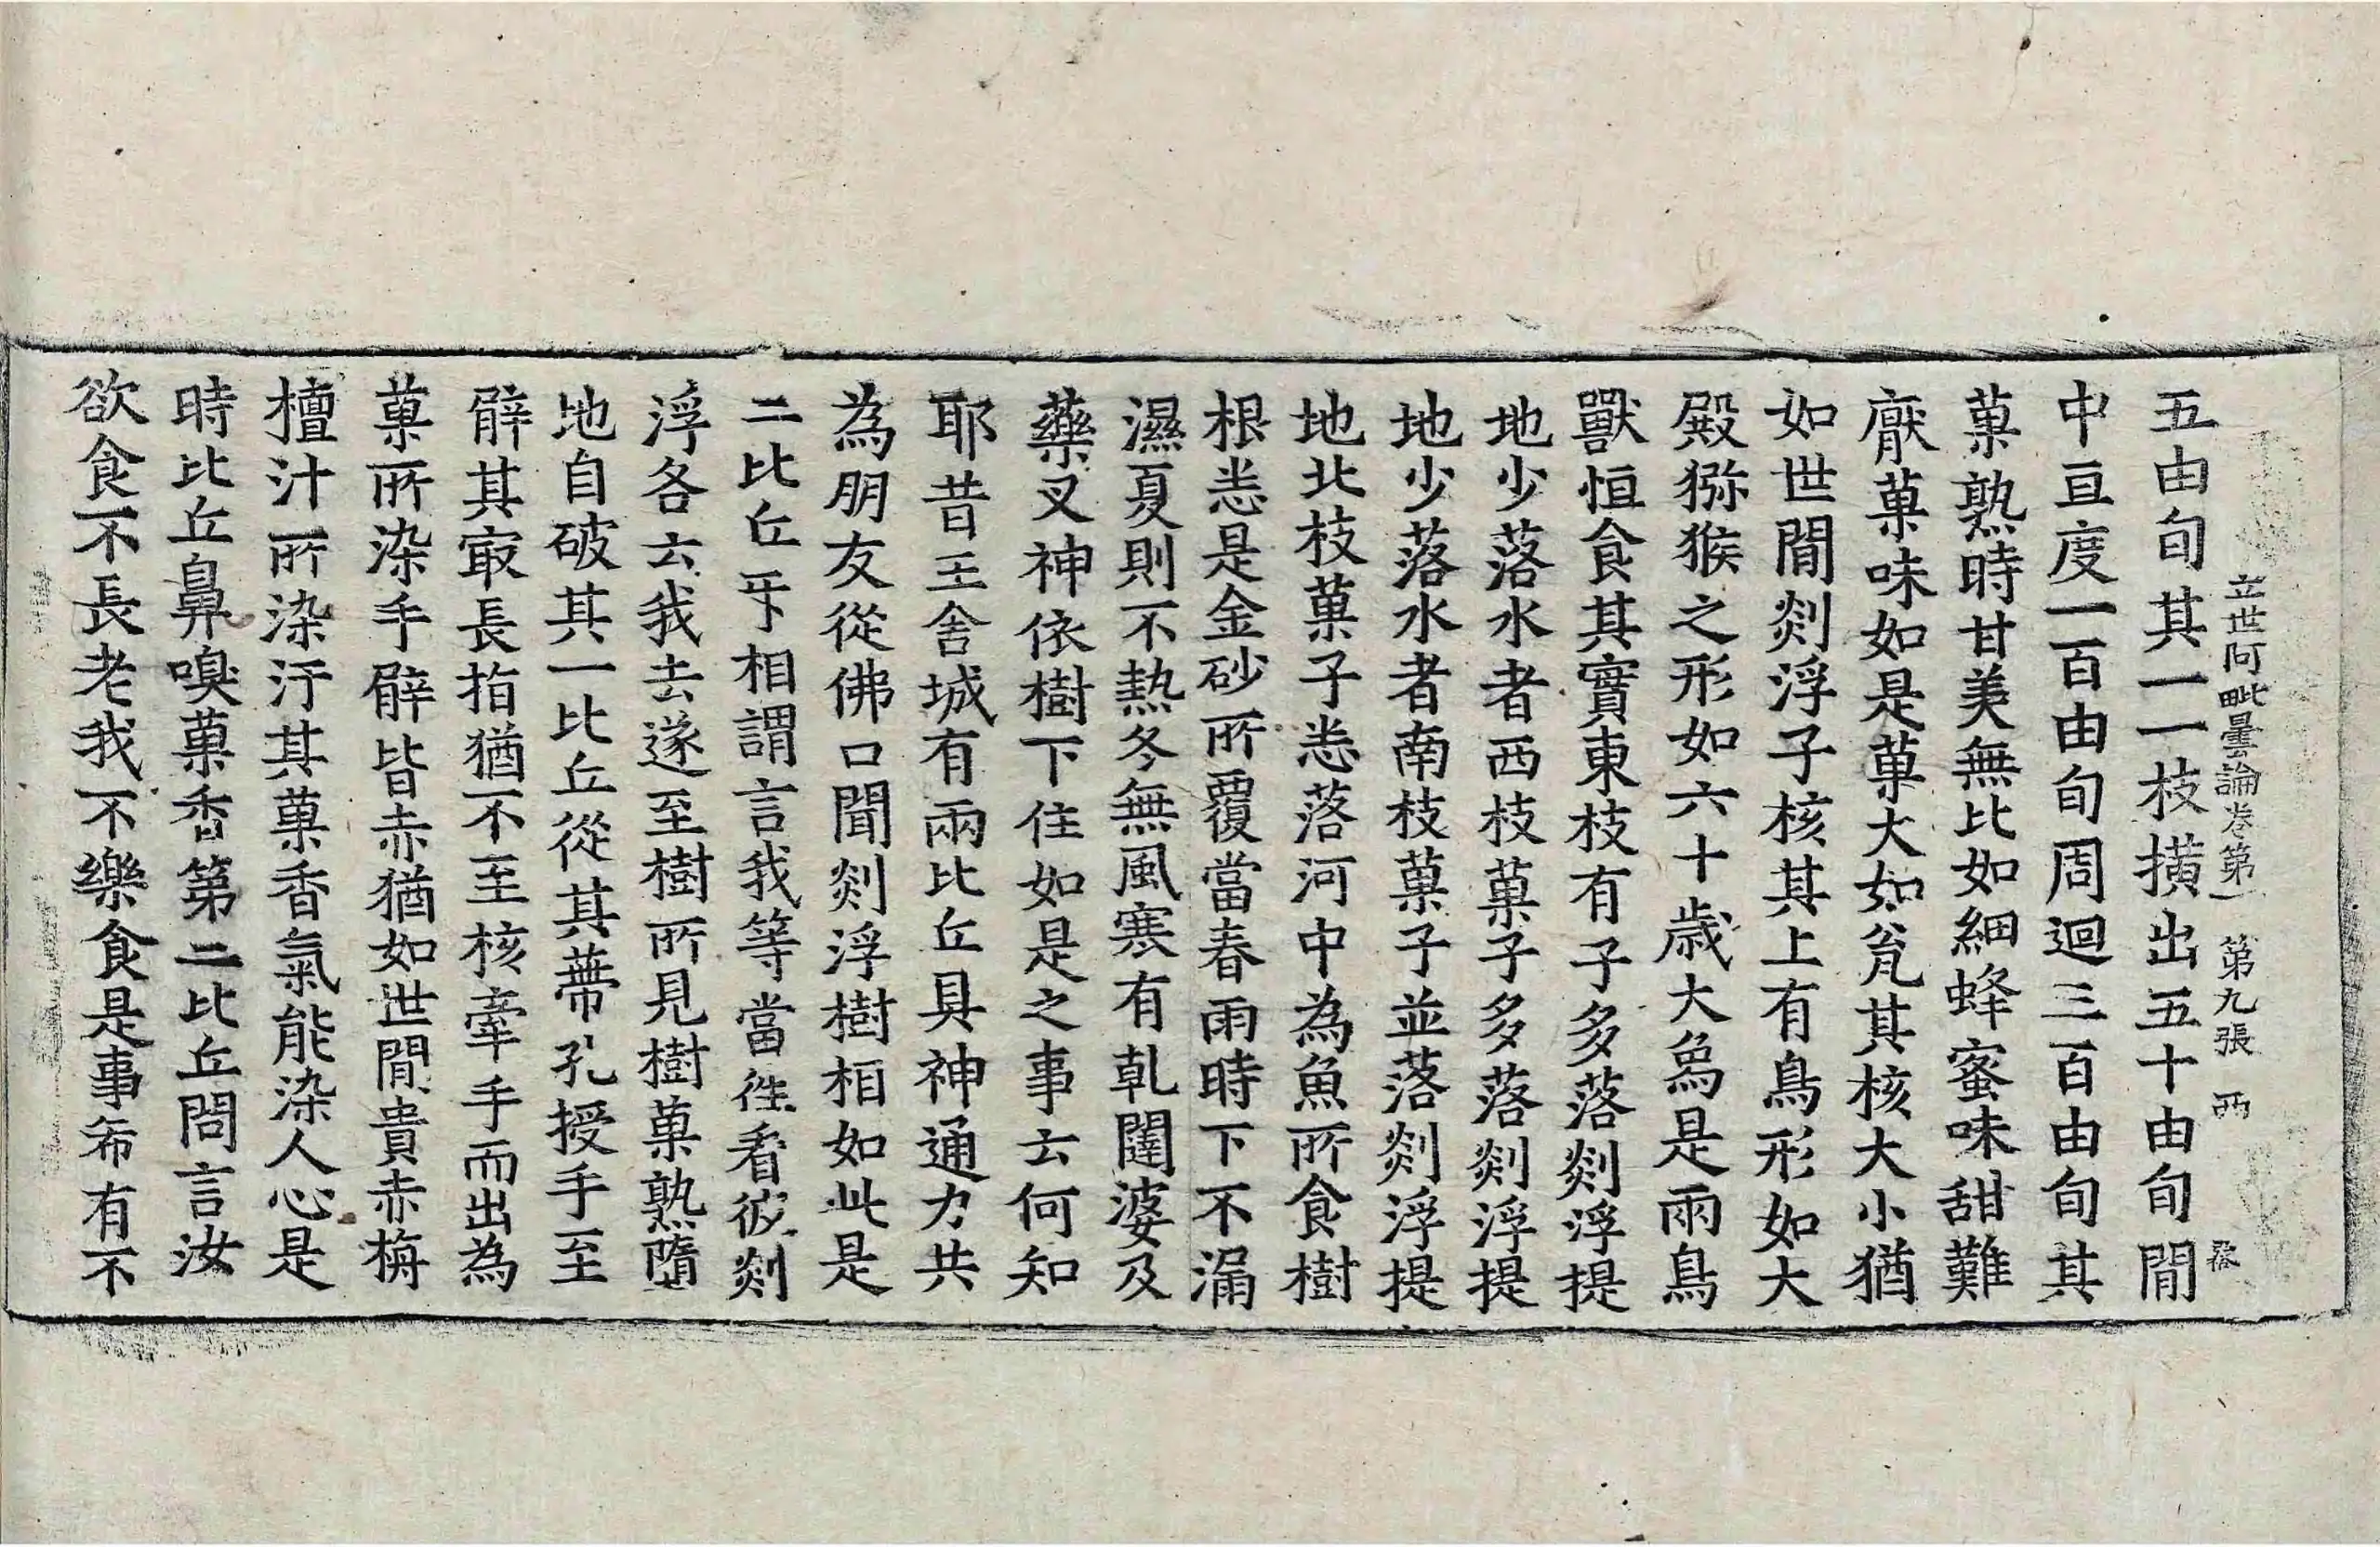 立世阿毗曇論卷第一 第九張 西
五由旬其一一枝撗出五十由旬閒
中亘度一百由旬周迴三百由旬其
菓熟時甘美無比如細蜂蜜味甜難
厭菓味如是菓大如瓮其核大小猶
如世閒剡浮子核其上有鳥形如大
殿猕猴之形如六十歳大象是兩鳥
獸恒食其實東枝有子多落剡浮提
地少落水者西枝菓子多落剡浮提
地少落水者南枝菓子並落剡浮提
地北枝菓子悉落河中為魚所食樹
根悉是金砂所覆當春雨時下不漏
濕夏則不熱冬無風寒有乹闥婆及
藥叉神依樹下住如是之事云何知
耶昔王舍城有兩比丘具神通力共
為朋友從佛口聞剡浮樹相如此是
二比丘㸦相謂言我等當徃看彼剡
浮各云我去遂至樹所見樹菓熟墮
地自破其一比丘從其蔕孔授手至
臂其㝡長指猶不至核牽手而出為
菓所染手臂皆赤猶如世閒貴赤栴
檀汁所染汙其菓香氣能染人心是
時比丘鼻嗅菓香第二比丘問言汝
欲食不長老我不樂食是事希有不